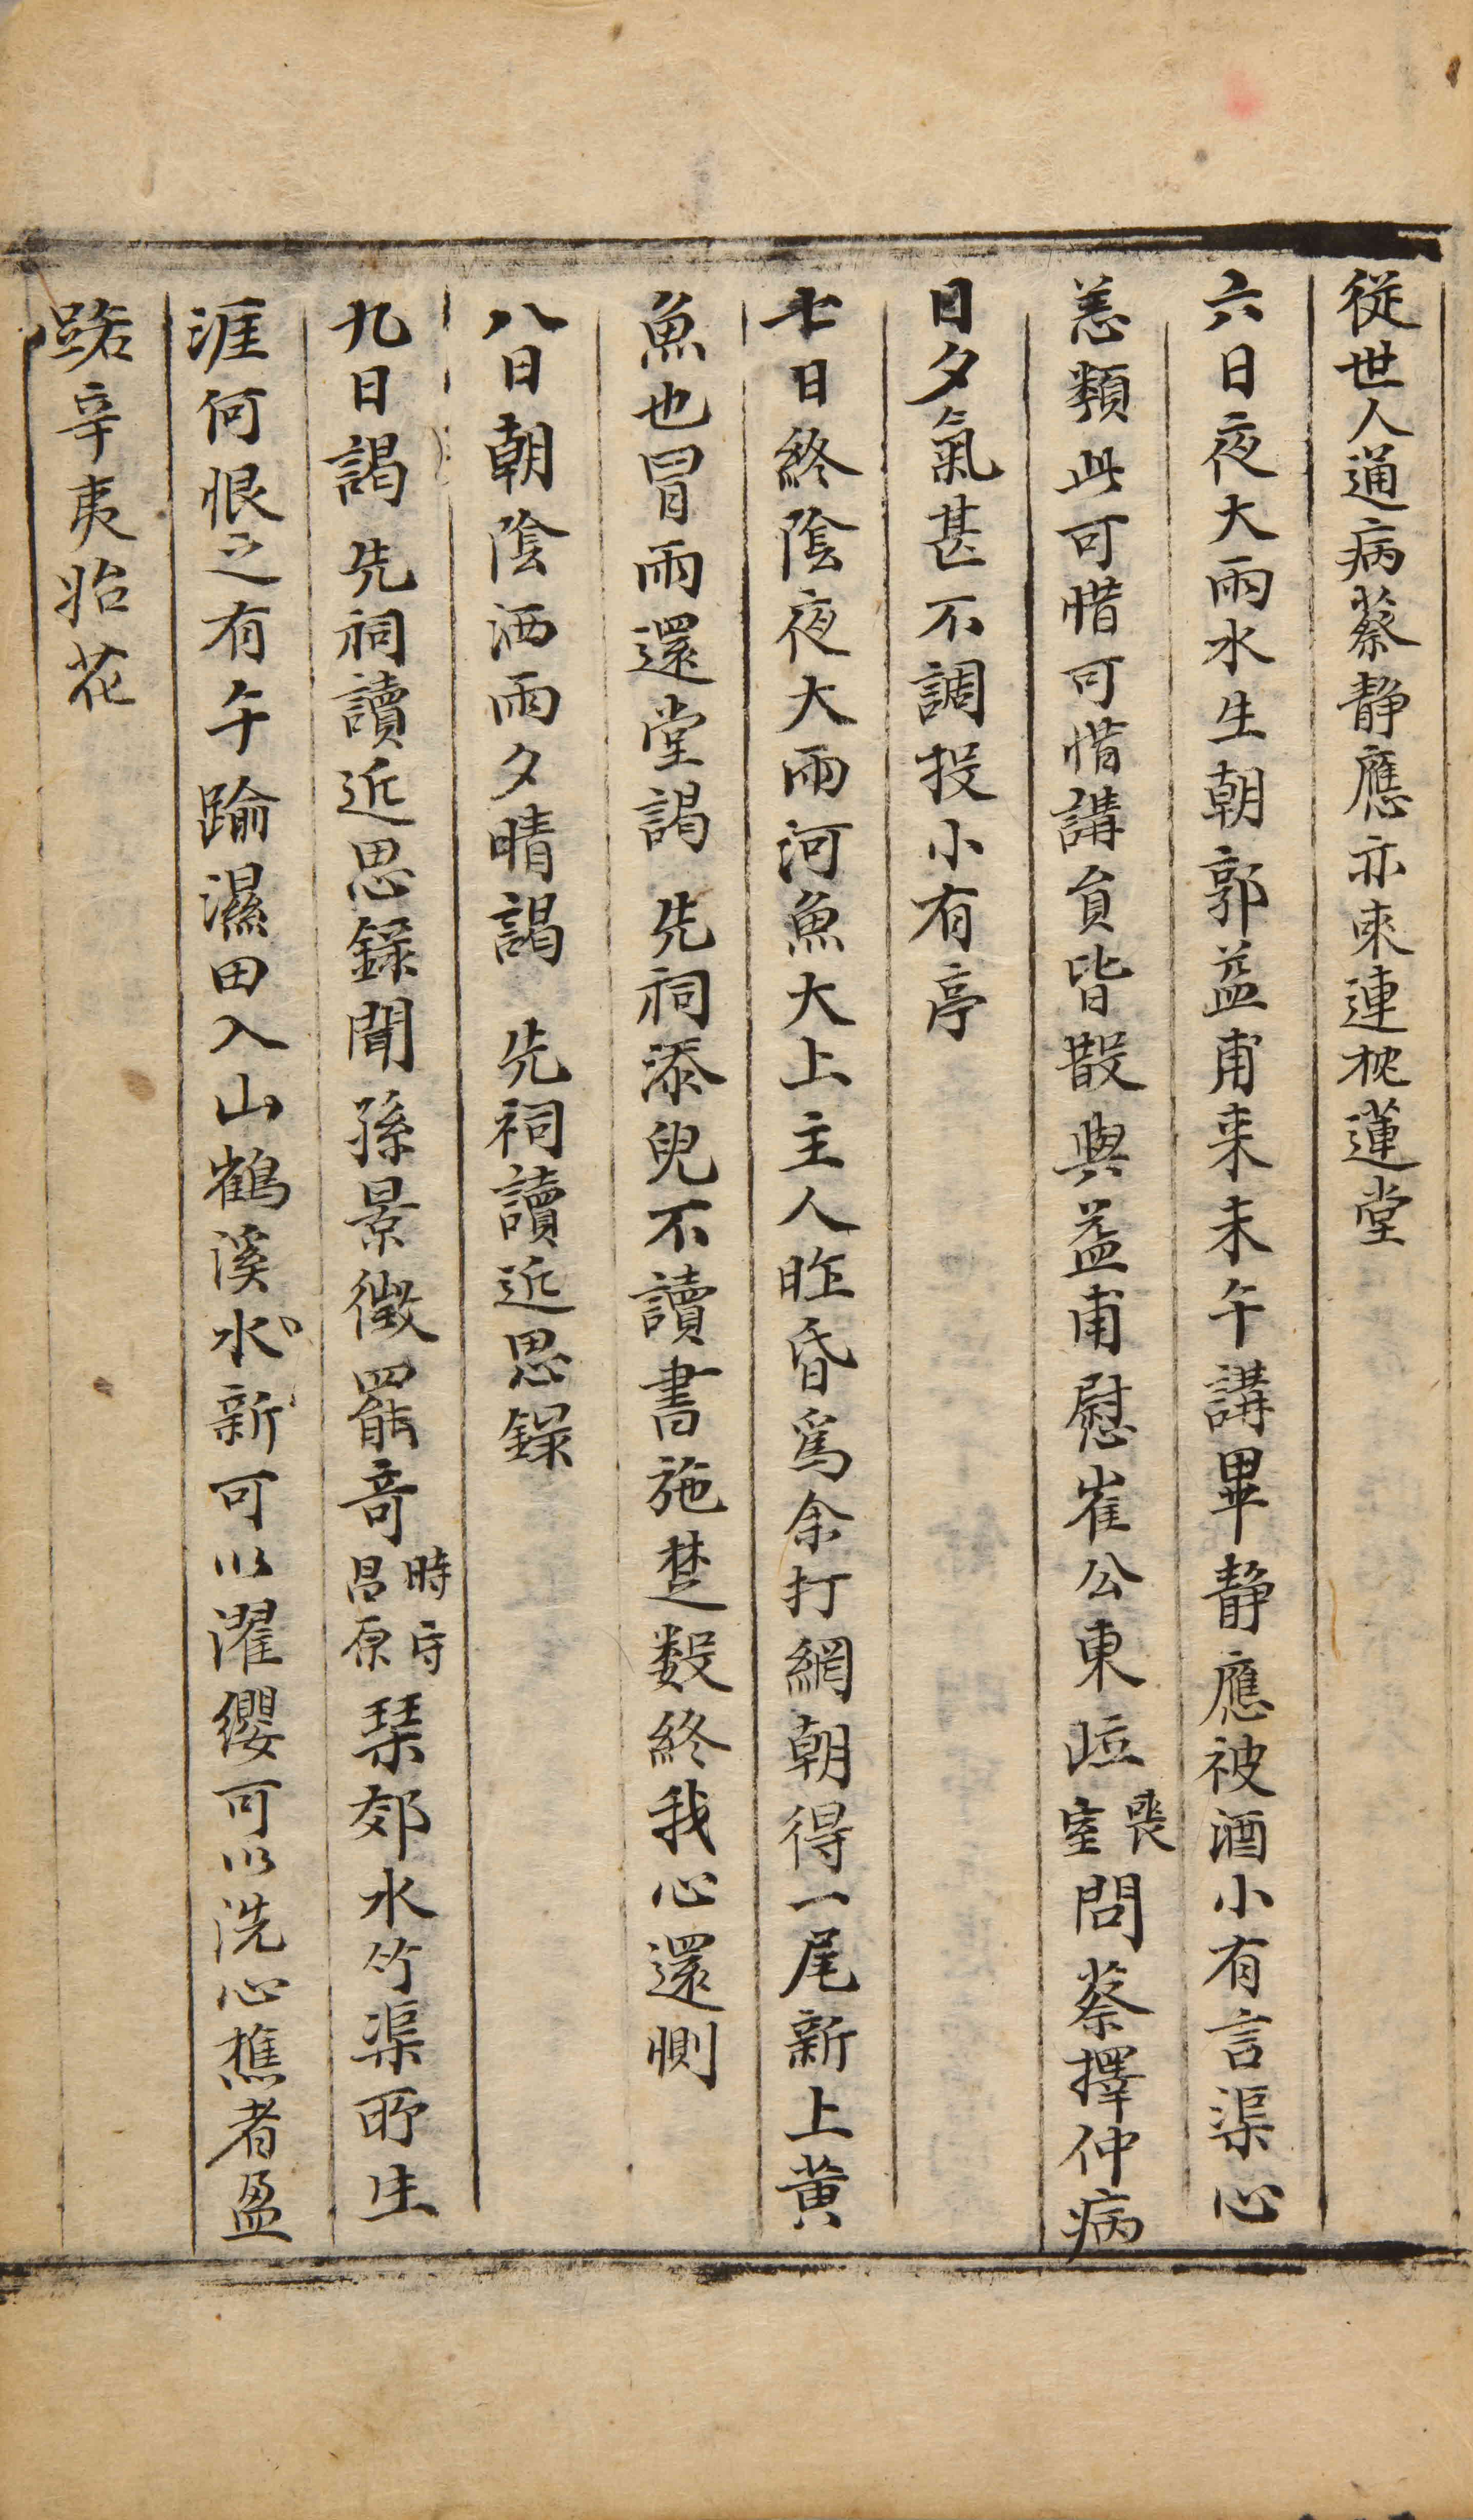 從世人通病蔡静應亦來連枕蓮堂
六日夜大雨水生朝郭益甫来未午講畢静應被酒小有言渠心
恙類此可惜可惜講員皆散與益甫慰崔公東喪室問蔡擇仲病
日夕氣甚不調投小有亭
七日終陰夜大雨河魚大上主人昨昏爲余打網朝得一尾新上黃
魚也冒雨還堂謁 先祠添兒不讀書施楚数終我心還惻
八日朝陰洒雨夕晴謁 先祠讀近思錄
九日謁 先祠讀近思錄聞孫景徵罷奇時守昌原琹郊水竹渠所生
涯何恨之有午踰濕田入山鶴溪水新可以濯纓可以洗心樵者盈
路辛夷始花